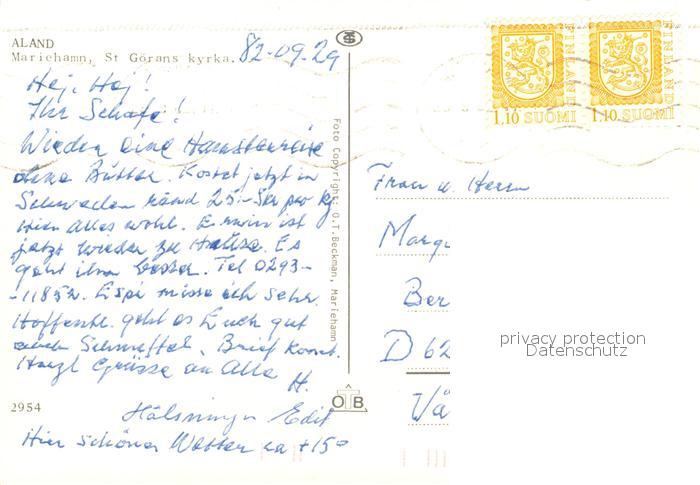 ALAND
Mariehamn, St Görans kyrka.
82-09-29
Hej, Hej!
Ihr Schafe!
Wieder eine
ohne Butter. Kostet jetzt in
Schweden rund 25:- Skr pro kg.
Hier Alles wohl. Erwin ist
jetzt wieder zu Hause. Es
geht ihm besser. Tel 0293-
-11852. Espi misse ich sehr.
Hoffentl. geht es Euch gut
auch Schmeffel. Brief kommt.
Herzl Grüsse an Alle
H.
Hälsningar Edit
Hier schönes Wetter ca +15°
2954
Foto Copyright: O.T.Beckman, Mariehamn
ÖTB
1,10 SUOMI
FINLAND
1,10 SUOMI
FINLAND
Frau u. Herrn
Marg
Ber
D 62
Wä
privacy protection
Datenschutz